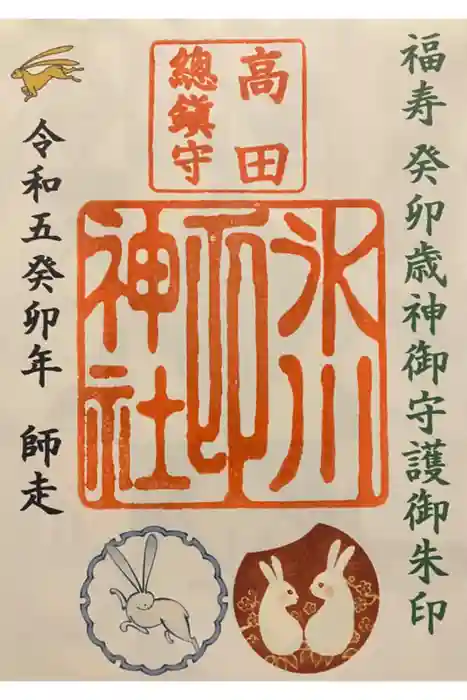 福寿 癸卯歳神御守護御朱印
高田
總鎮守
氷川
神社
印
令和五癸卯年 師走